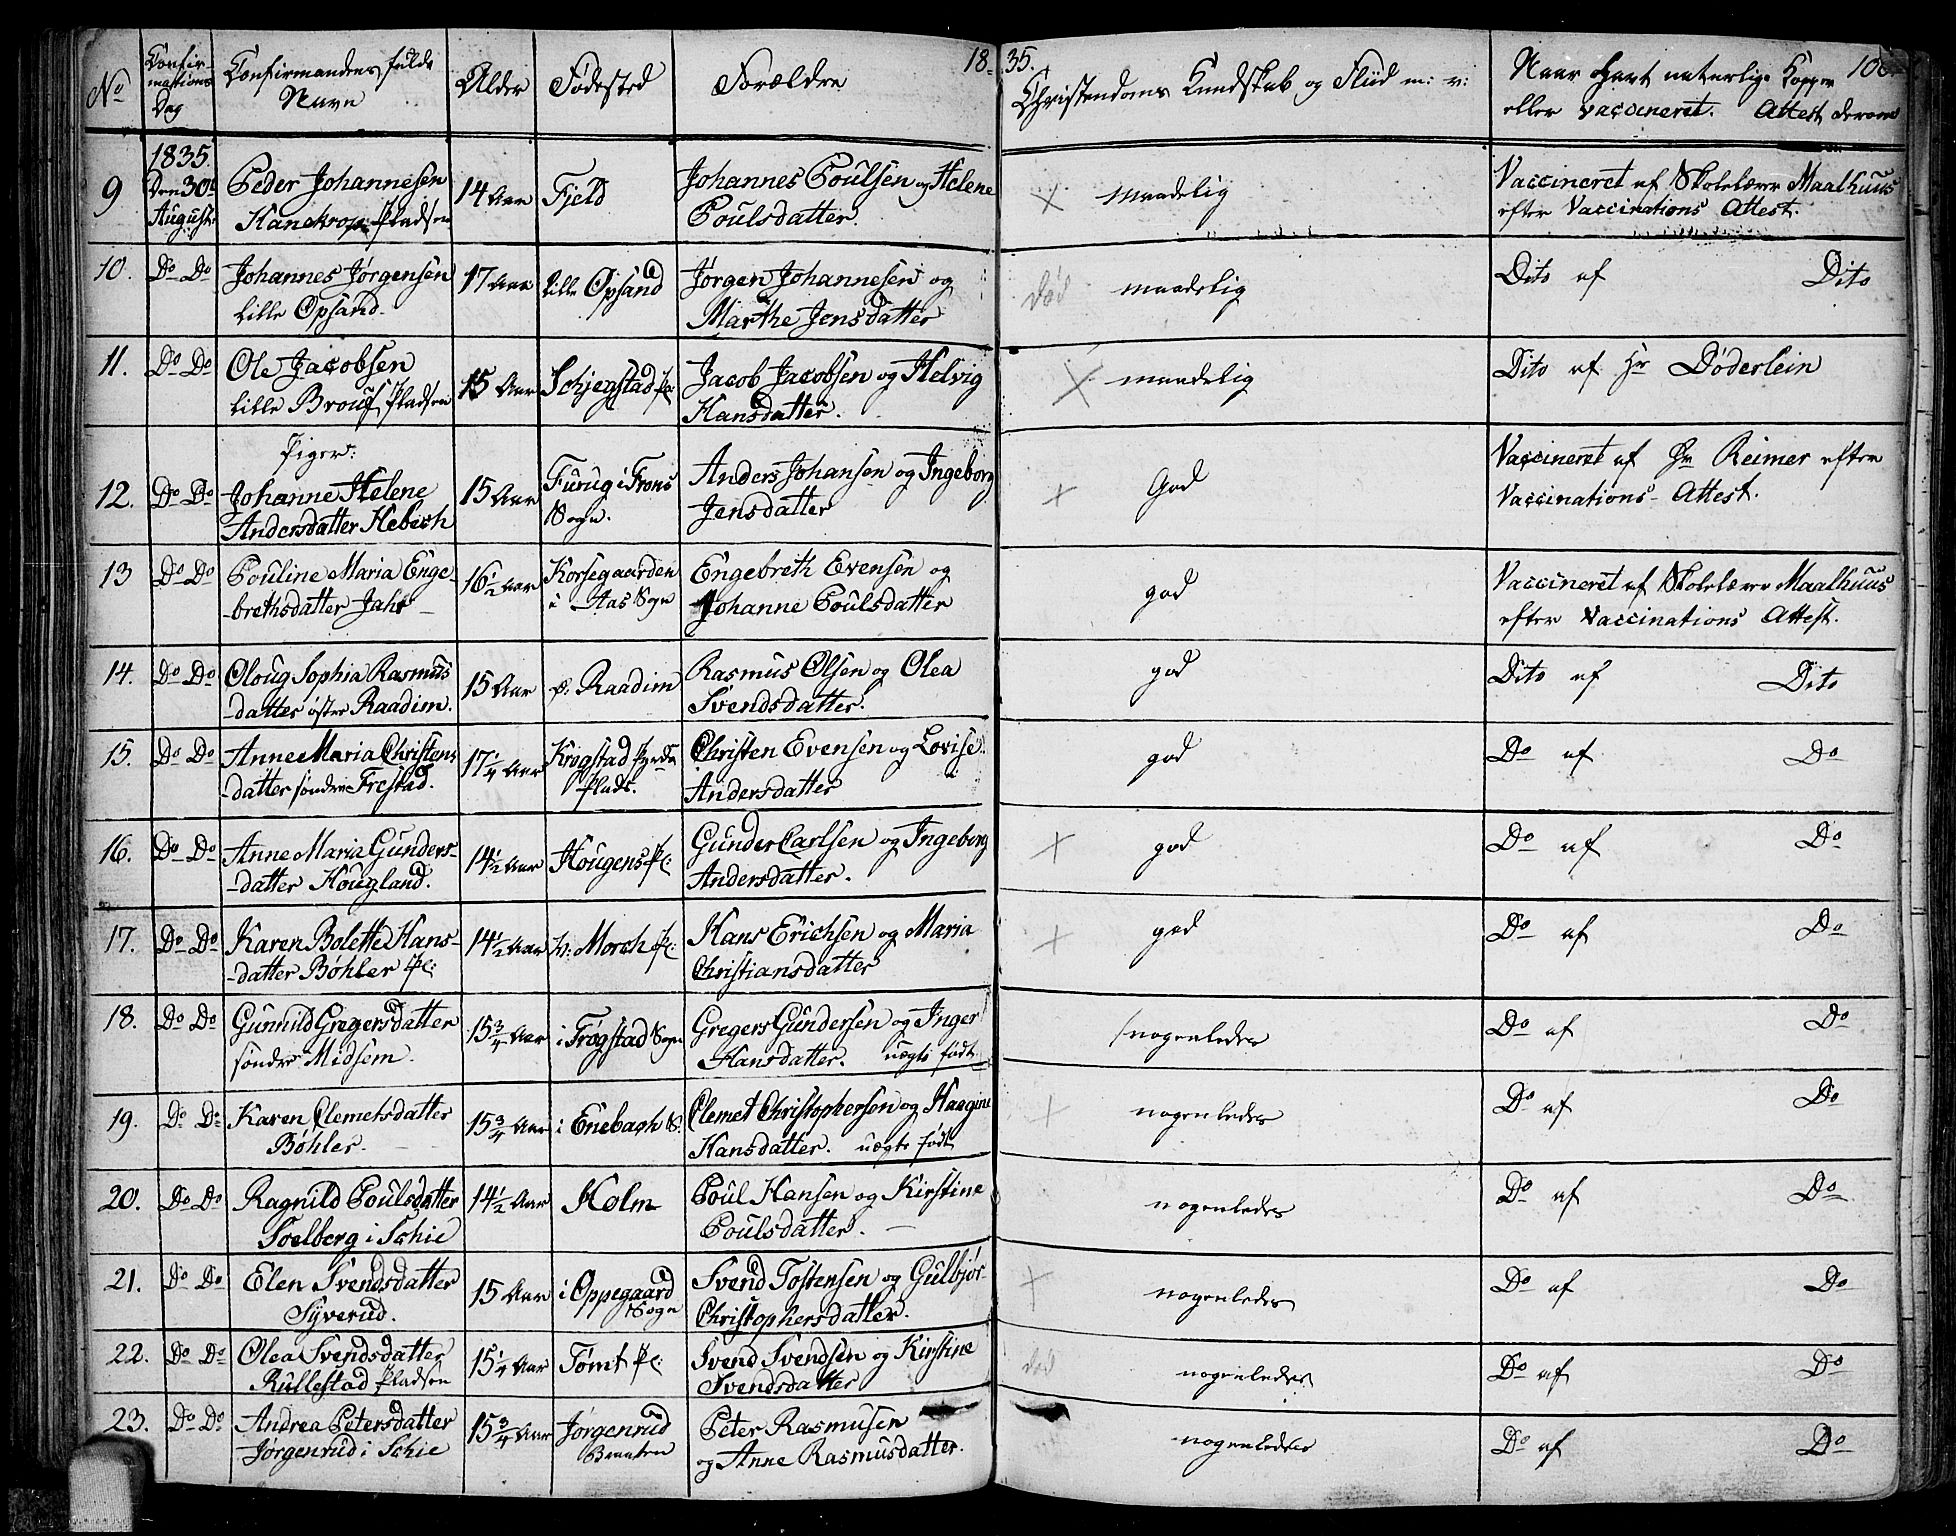 18 35. 100
No Confir- Confirmandens fulde Alder Fødested Forældre Christendoms Kundskab og Fliid m: v: Naar havt naturlige Kopper
mations Navn eller vaccineret. Attest derom
Dag
1835.
9 Den 30te Peder Johannesen 14 Aar Fjeld Johannes Poulsen og Helene × maadelig Vaccineret af Skolelærer Maalhuus
August Pladsen Poulsdatter. efter Vaccinations Attest.
10. Do Do Johannes Jørgensen 17 Aar lille Opsand Jørgen Johannesen og død maadelig Dito af Dito
lille Opsand. Marthe Jensdatter
11. Do Do Ole Jacobsen 15 Aar Schjegstad Pl: Jacob Jacobsen og Helvig × maadelig Dito af Hr Døderlein
lille Pladsen Hansdatter.
Piger:
12. Do Do Johanne Helene 15 Aar Furug i Frons Anders Johansen og Ingeborg × God Vaccineret af Hr Reimer efter
Andersdatter Kebech Sogn. Jensdatter Vaccinations Attest.
13 Do Do Pouline Maria Enge- 16½ Aar Korsegaarden Engebreth Evensen og god Vaccineret af Skolelærer Maalhuus
-brethsdatter Jahr i Aas Sogn Johanne Poulsdatter efter Vaccinations Attest.
14. Do Do Oloug Sophia Rasmus 15 Aar ø: Raadim Rasmus Olsen og Olea god Dito af Dito
-datter østre Raadim. Svendsdatter.
15. Do Do Anne Maria Christens 17¼ Aar Krogstad Christen Evensen og Lovise god Do af Do
-datter søndre Frestad. Plads. Andersdatter
16. Do Do Anne Maria Gunders- 14½ Aar Hougens Pl: Gunder Carlsen og Ingeborg × god Do af Do
-datter Hougland. Andersdatter.
17. Do Do Karen Bolette Hans- 14½ Aar v: Morch Pl: Hans Erichsen og Maria × god Do af Do
-datter Bøhler Pl: Christiansdatter
18. Do Do Gunnild Gregersdatter 15¾ Aar i Frøgstad Sogn Gregers Gundersen og Inger nogenledes Do af Do
søndre Midsem. Hansdatter. uægte født
19. Do Do Karen Clemetsdatter 15¾ Aar i Enebach S: Clemet Christophersen og Haagine × nogenledes Do af Do
Bøhler. Hansdatter. uægte født
20. Do Do Ragnild Poulsdatter 14½ Aar Holm Poul Hansen og Kirstine nogenledes Do af Do
Soelberg i Schie Poulsdatter.
21. Do Do Elen Svendsdatter 15 Aar i Oppegaard Svend Tostensen og Gulbjør × nogenledes Do af Do
Syverud. Sogn Christophersdatter.
22. Do Do Olea Svendsdatter 15¼ Aar Tømt Pl: Svend Svendsen og Kirstine død nogenledes Do af Do
Rullestad Pladsen Svendsdatter
23. Do Do Andrea Petersdatter 15¾ Aar Jørgenrud Peter Rasmusen nogenledes Do af Do
Jørgenrud i Schie Braaten og Anne Rasmusdatter.